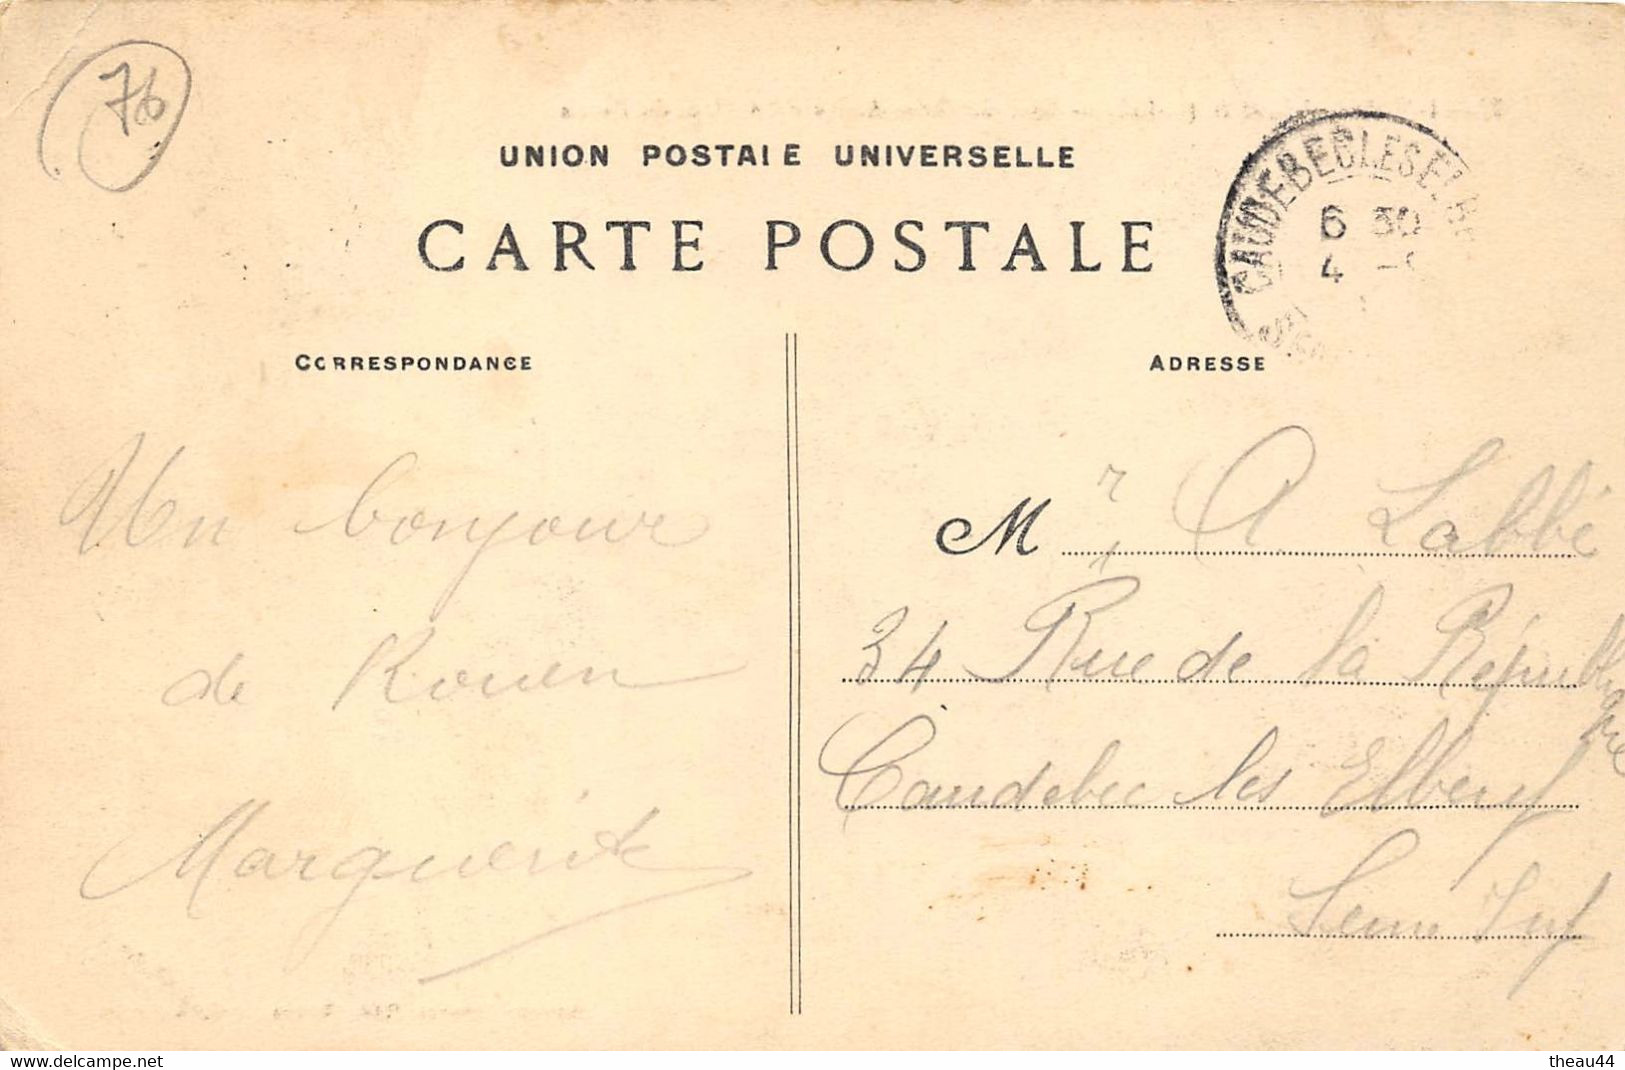 76
UNION POSTALE UNIVERSELLE
CARTE POSTALE
CAUDEBEC LES ELB
6 30
4
CORRESPONDANCE
ADRESSE
Un bonjour
de Rouen
Marguerite
Mr A. Labbé
34 Rue de la République
Caudebec les Elbeuf
Seine Inf
www.delcampe.net
theau44